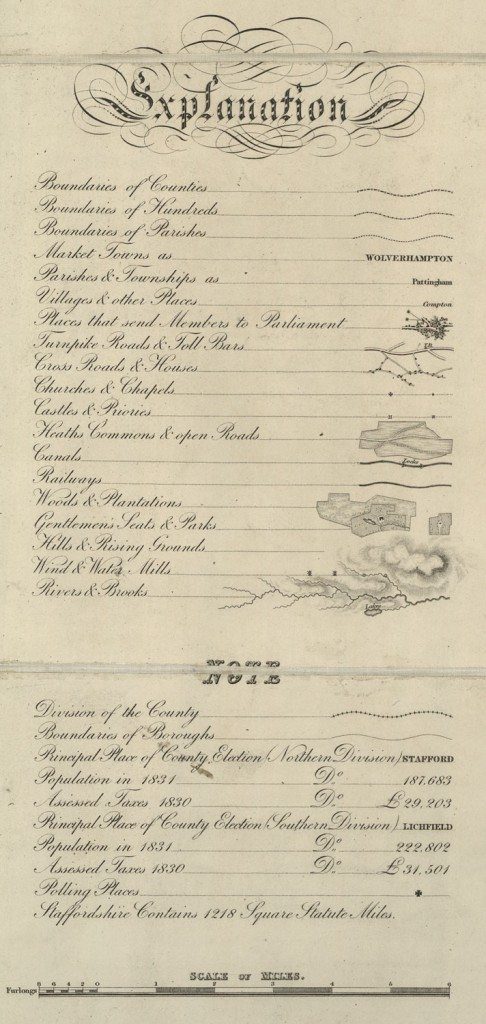 Explanation
Boundaries of Counties
Boundaries of Hundreds
Boundaries of Parishes
Market Towns as WOLVERHAMPTON
Parishes & Townships as Pattingham
Villages & other Places Compton
Places that send Members to Parliament
Turnpike Roads & Toll Bars T.B.
Cross Roads & Houses
Churches & Chapels
Castles & Priories
Heaths Commons & open Roads
Canals Locks
Railways
Woods & Plantations
Gentlemen's Seats & Parks
Hills & Rising Grounds
Wind & Water Mills
Rivers & Brooks
NOTE
Division of the County
Boundaries of Boroughs
Principal Place of County Election (Northern Division) STAFFORD
Population in 1831 Do. 187,683
Assessed Taxes 1830 Do. £29,203
Principal Place of County Election (Southern Division) LICHFIELD
Population in 1831 Do. 222,802
Assessed Taxes 1830 Do. £31,501
Polling Places
Staffordshire Contains 1218 Square Statute Miles.
SCALE OF MILES.
Furlongs 8 6 4 2 0 1 2 3 4 5 6